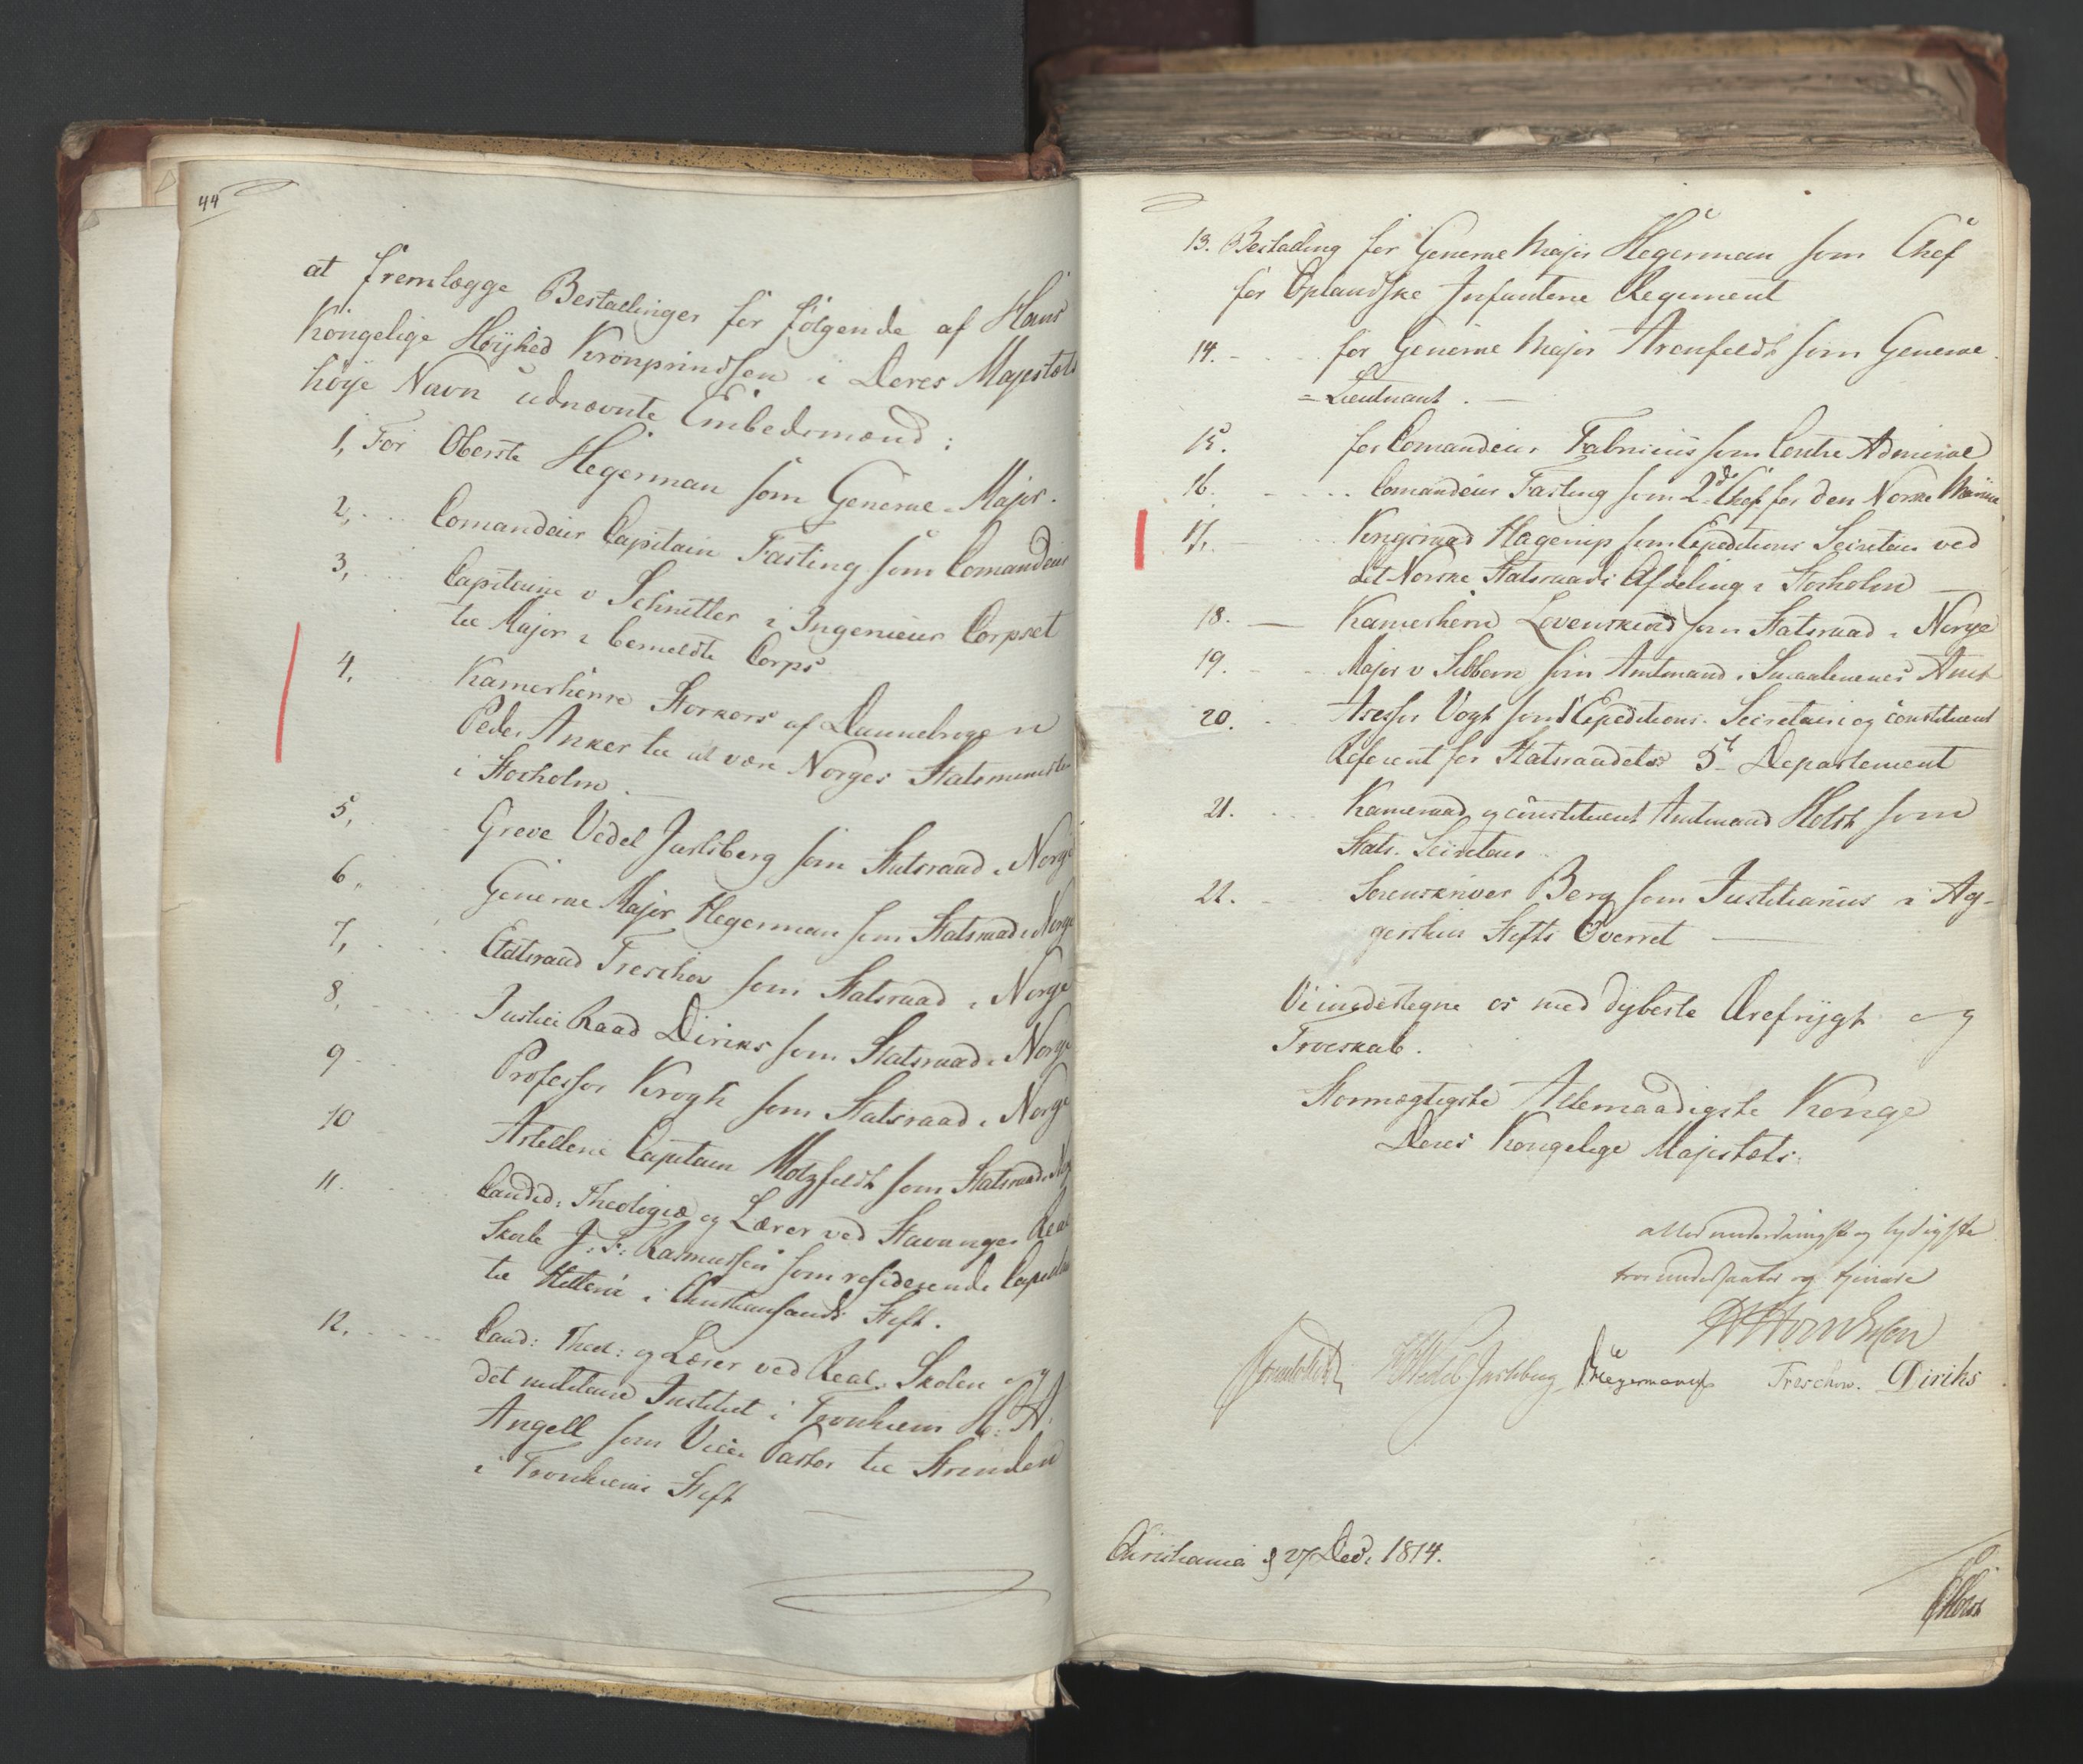 44
at fremlægge Bestallinger for følgende af Hans
Kongelige Høyhed Kronprindsen i Deres Majestæts
høye Navn udnævnte Embedsmænd:
1, For Oberste Hegerman som General-Major.
2, Comandeur Capitain Fasting som Comandeur
3, Capitaine v Schnitler i Ingenieur Corpset
til Major i bemeldte Corps
4, Kamerherre Storkors af Dannebrogen
Peder Anker til at være Norges Statsminister
i Stocholm.
5, Greve Vedel Jarlsberg som Statsraad i Norge
6, General Major Hegerman som Statsraad i Norge
7, Etatsraad Treschov som Statsraad i Norge
8, Justice Raad Diriks som Statsraad i Norge
9 Professor Krogh som Statsraad i Norge
10 Artilleri Capitain Motzfeldt som Statsraad i
11. Candid: Theologiæ og Lærer ved Stavanger Real
Skole J: F: Rasmussen som residerende Capellan
til Hetteröe i Christiansands Stift.
12. Cand: Theol: og Lærer ved Real-Skolen og
det militaire Institut i Tronhiem
Angell som Vice Pastor til Strinden
i Tronhiems Stift
13. Bestalling for General Major Hegerman som Chef
for Oplandske Infanterie Regiment
14. for General Major Arenfeldt som General
=Lieutnant.
15. for Comandeur Fabricius som Contre Admiral
16. Comandeur Fasting som 2den Chef for den Norske Marine
17. Krigsraad Hagerup som Expeditions Secretair ved
det Norske Statsraads Afdeling i Stocholm
18. Kamerherre Løvenskiold som Statsraad i Norge
19. Major v Sibbern som Amtmand i Smaalenenes Amt
20. Assessor Vogt som Expeditions-Secretair og constitueret
Referent for Statsraadets 5te Departement
21. Kameraad og constitueret Amtmand Holst som
Stats-Secretair
22. Sorenskriver Berg som Justitiarius i Ag-
gershuus Stifts Overret
Vi undertegne os med dybeste Ærefrygt og
Troeskab.
Stormægtigste Allernaadigste Konge
Deres Kongelige Majestæts
allerunderdanigste og lydigste
troe undersaatter og tjenere
Sommerhielm Wedel Jarlsberg Hegermann Treschow. Diriks
Christiania d 27 Dec. 1814.
Holst